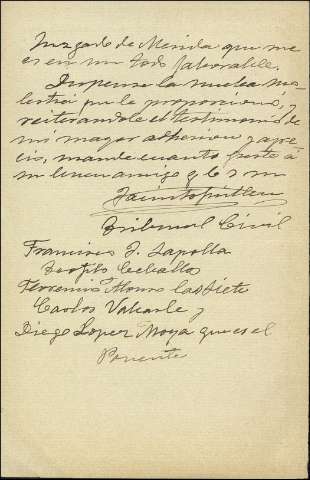 Juzgado de Merida que me
es en un todo faborable.
Dispense la mucha mo-
lestia que le proporciono, y
reiterandole el testimonio de
mi mayor adhesion y apre-
cio, mande cuanto guste á
su buen amigo q b s m
Tribunal Civil
Francisco J. Zapatta
Teofilo Ceballos
Florencio Alonso Lasliete
Carlos Valcarle y
Diego Lopez Moya que es el
Ponente